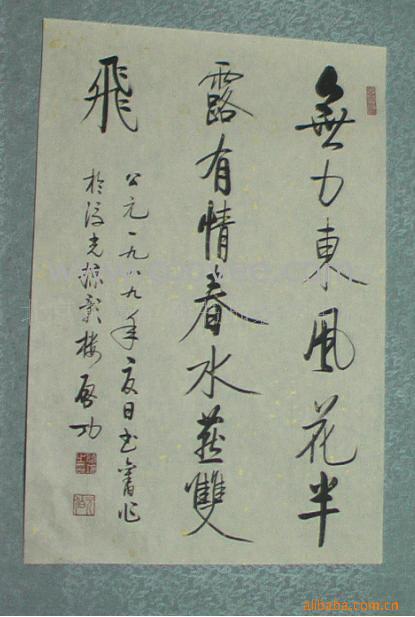 無力東風花半
露有情春水燕雙
飛
公元一九八九年夏日书舊作
於浮光掠影樓 啓功
alibaba.com.cn